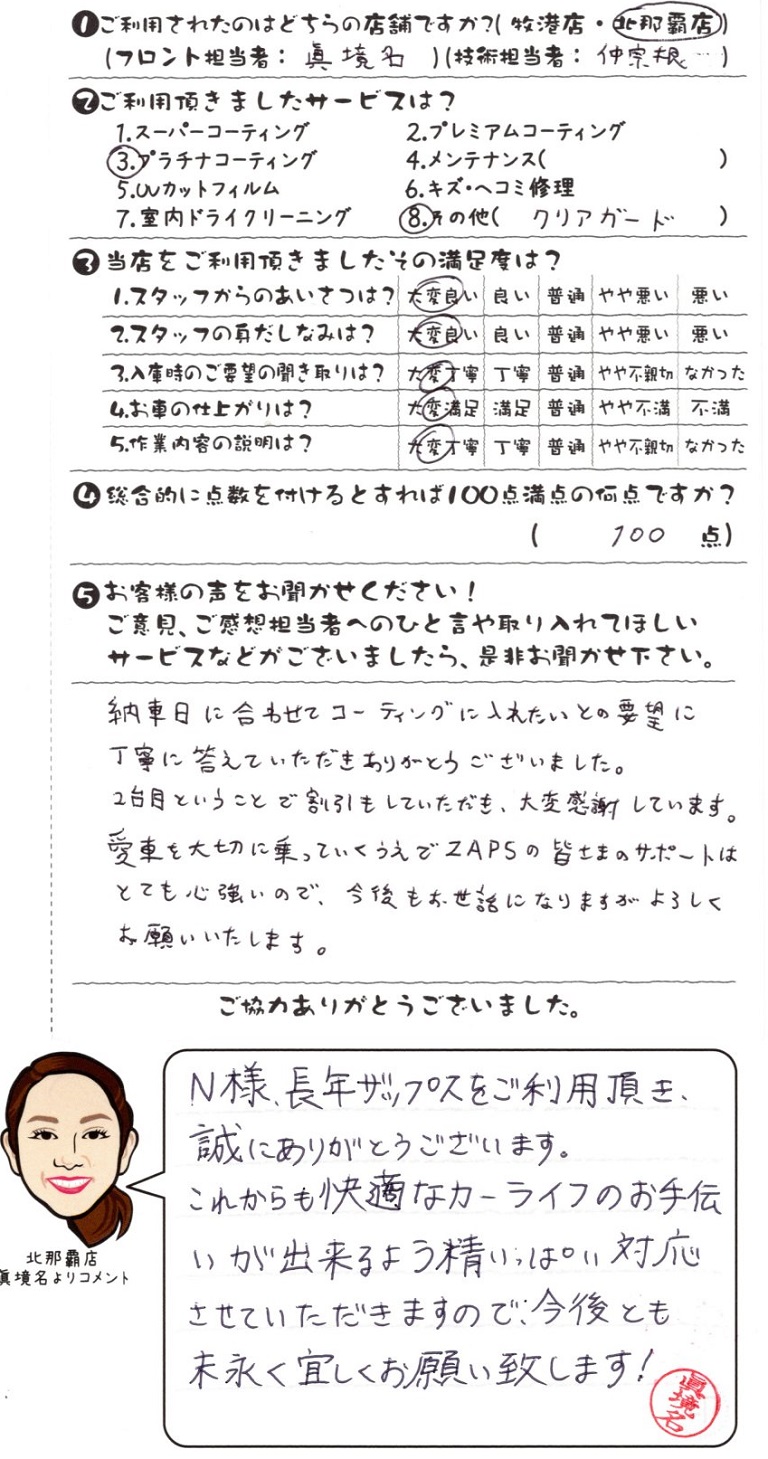 ❶ご利用されたのはどちらの店舗ですか?(牧港店・北那覇店)
(フロント担当者：眞境名)(技術担当者：仲宗根)
❷ご利用頂きましたサービスは?
1.スーパーコーティング 2.プレミアムコーティング
3.プラチナコーティング 4.メンテナンス( )
5.UVカットフィルム 6.キズ・ヘコミ修理
7.室内ドライクリーニング 8.その他(クリアガード)
❸当店をご利用頂きましたその満足度は?
1.スタッフからのあいさつは? 大変良い 良い 普通 やや悪い 悪い
2.スタッフの身だしなみは? 大変良い 良い 普通 やや悪い 悪い
3.入庫時のご要望の聞き取りは? 大変丁寧 丁寧 普通 やや不親切 なかった
4.お車の仕上がりは? 大変満足 満足 普通 やや不満 不満
5.作業内容の説明は? 大変丁寧 丁寧 普通 やや不親切 なかった
❹総合的に点数を付けるとすれば100点満点の何点ですか?
(100点)
❺お客様の声をお聞かせください!
ご意見、ご感想担当者へのひと言や取り入れてほしい
サービスなどがございましたら、是非お聞かせ下さい。
納車日に合わせてコーティングに入れたいとの要望に
丁寧に答えていただきありがとうございました。
2台目ということで割引もしていただき、大変感謝しています。
愛車を大切に乗っていくうえでZAPSの皆さまのサポートは
とても心強いので、今後もお世話になりますがよろしく
お願いいたします。
ご協力ありがとうございました。
N様、長年ザップスをご利用頂き、
誠にありがとうございます。
これからも快適なカーライフのお手伝
いが出来るよう精いっぱい対応
させていただきますので、今後とも
末永く宜しくお願い致します!
眞境名
北那覇店
眞境名よりコメント